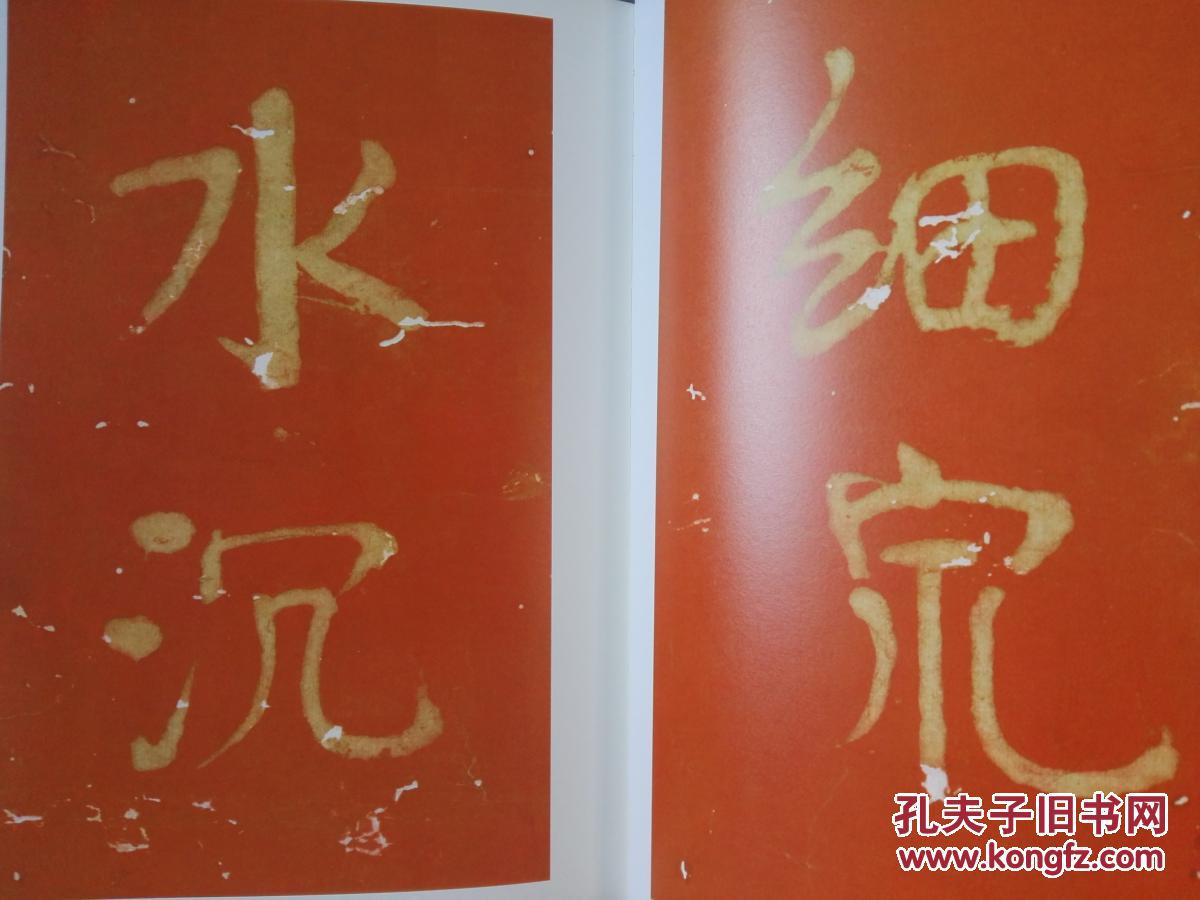 細
水沉
孔夫子旧书网
www.kongfz.com